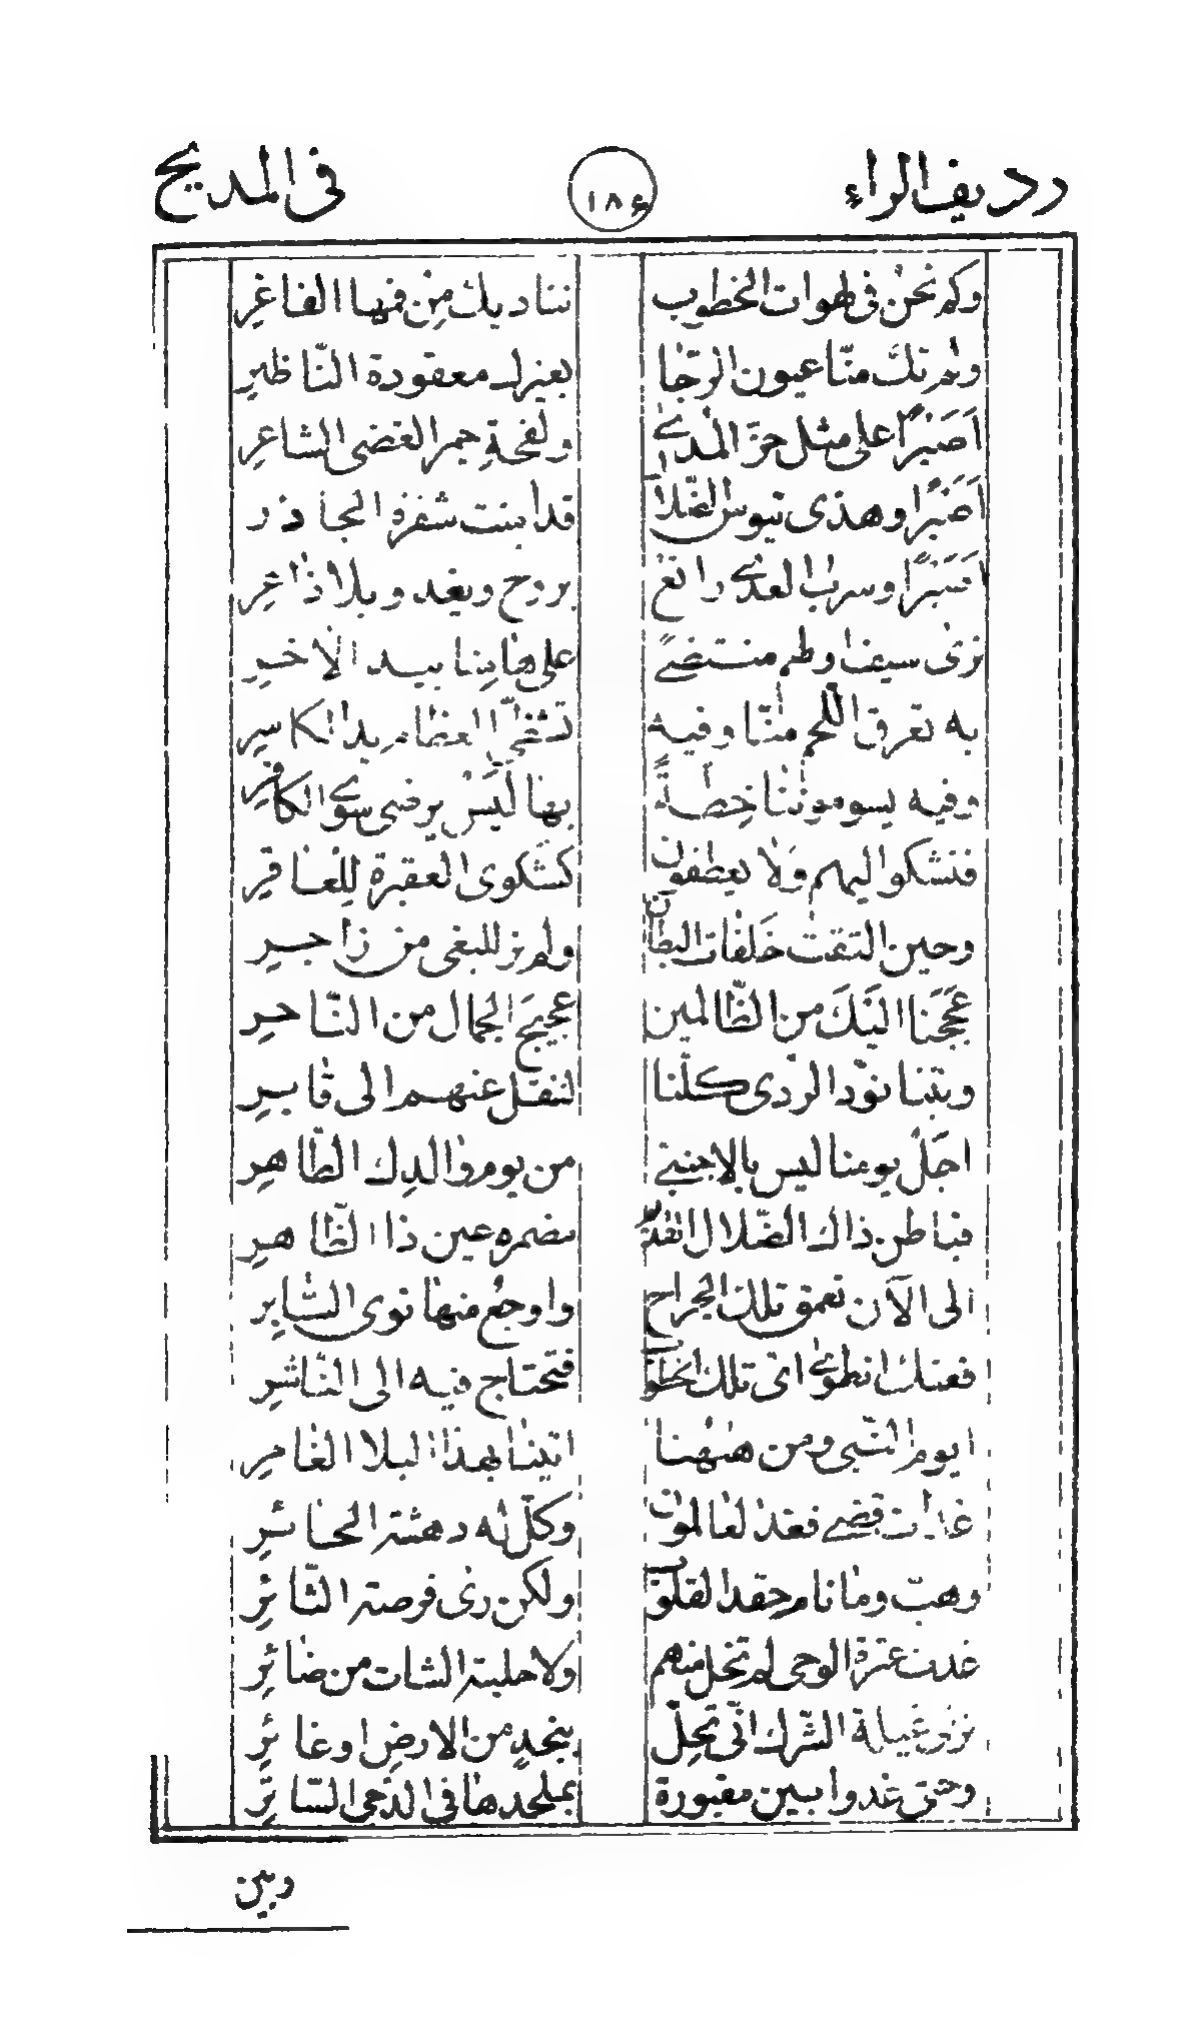 رديف الراء ١٨۶ فى المديح
وكم نحن فى لهوات الخطوب نناديك مِن فمها الفاغرِ
ولم تك منّا عيون الرّجا بغيرك معقودة النّاظرِ
اَصَبْرًا على مثل حزّ المُدىٰ ولفحةِ جمر الغضى الشاعرِ
اَصَبْرًا وهذى تيوس الضّلال قد امنت شفرة الجاذر
اَصَبْرًا وسرب العدىٰ راتع يروح ويغدو بلا ذاعرِ
نرى سيف اولهم منتضىً على هامنا بيد الآخرِ
به تعرق اللّحم منّا وفيه تشظّى العظام يد الكاسرِ
وفيه يسوموننا خِطّةً بها ليس يرضى سوىٰ الكافرِ
فنشكوا اليهم وَلا يعطفون كشكوى العقيرة لِلعاقرِ
وحين التقت حَلقات البطان ولم نر للبغى من زاجرِ
عَجَجَنا اليَكَ من الظّالمين عجيجَ الجمال من النّاحرِ
وبتنا نودّ الردى كلّنا لننقل عنهم الى قابرِ
اجَلْ يومنا ليس بالاجنبىّ من يوم والدِك الطّاهرِ
فباطن ذاك الضّلال القديم مضمره عين ذا الظّاهرِ
الى الآن تعمق تلك الجراح واوجع منها نوى السّابرِ
فعنك انطوىٰ اىّ تلك الخطوب فتحتاج فيه الى النّاشرِ
ايوم النّبى ومن هٰهُنا اتينا بهذا البلا الغامرِ
غداة قضىٰ فغدا لعالمون وكلّ له دهشة الحائرِ
وهبّ وما نام حقد القلوب ولكن رى فرصة الثّائرِ
غدت عترة الوحى لم تخل منهم ولا حلبة الشات من ضائرِ
نزو غيلة الشّرك انّى تحلّ بنجدٍ من الارض او غائرِ
وحتى غدوا بين مقبورة بملحدها فى الدّجى السّاترِ
وبين